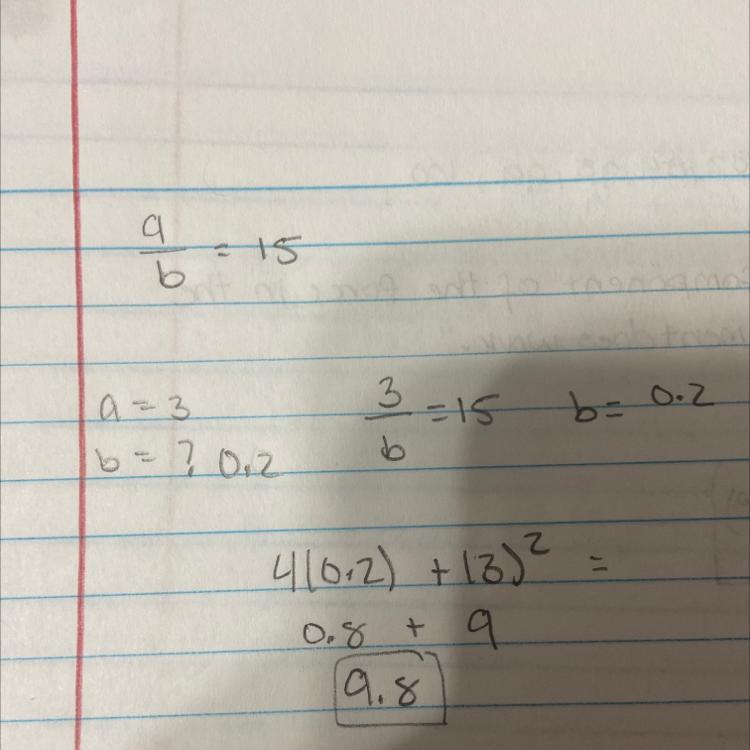 a/b = 15
a = 3    3/b = 15    b = 0.2
b = ? 0.2
4(0.2) + (3)² =
0.8 + 9
9.8